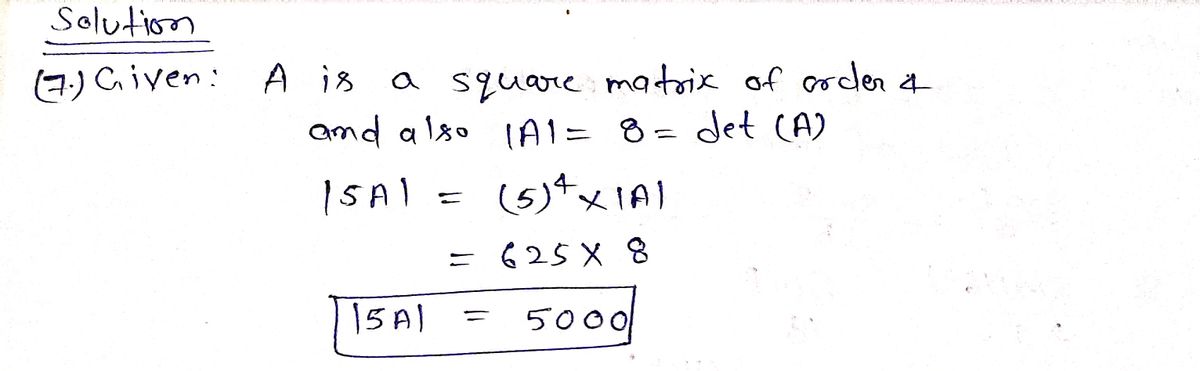 Solution
(7.) Given: A is a square matrix of order 4
and also |A| = 8 = det (A)
|5A| = (5)⁴ × |A|
= 625 × 8
|5A| = 5000